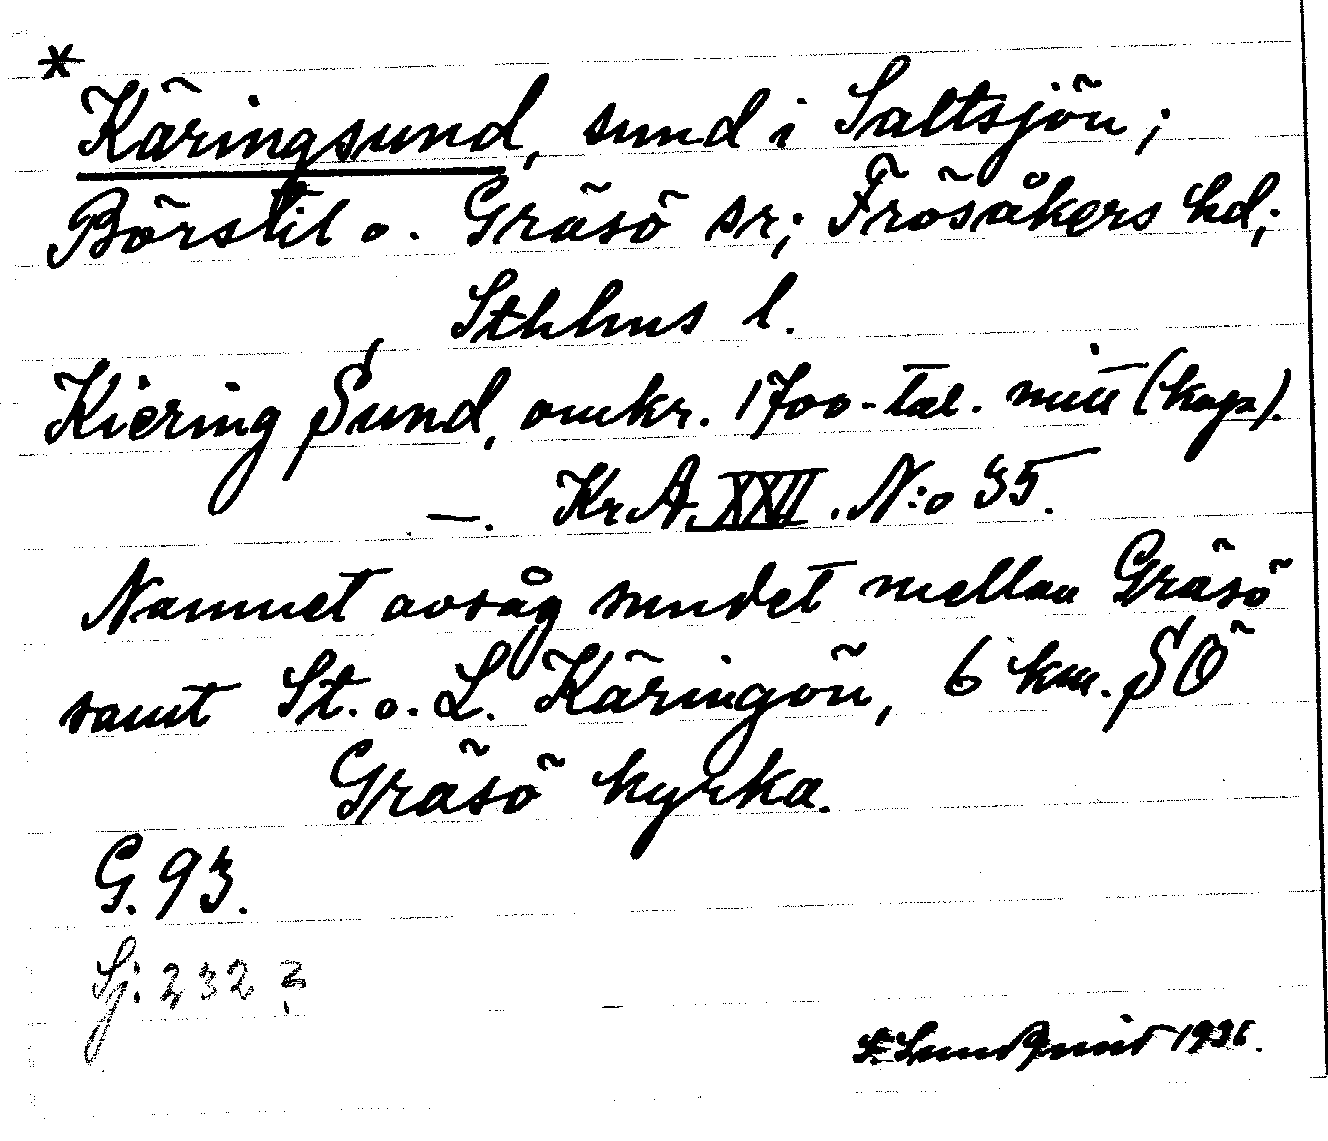 *
Käringsund, sund i Saltsjön;
Börstil o. Gräsö sr; Frösåkers hd;
Sthlms l.
Kiering Sund, omkr. 1700-tal. mitt (kop).
—. Kr.A. XXVI. N:o 35.
Namnet avsåg sundet mellan Gräsö
samt St. o. L. Käringön, 6 km. SÖ
Gräsö kyrka.
G. 93.
Sj. 232 ?
E. Lundquist 1936.